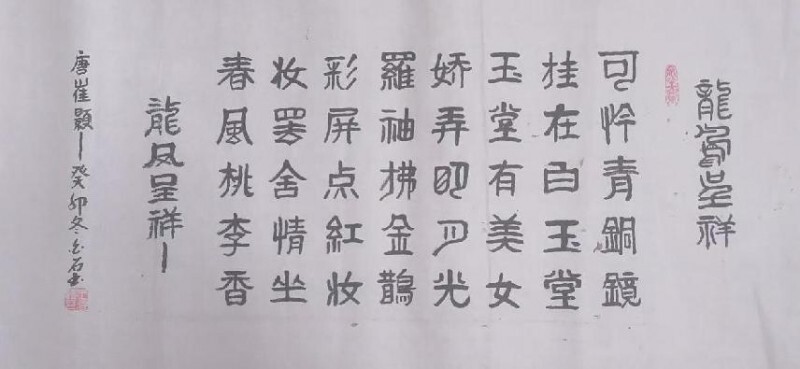 龍鳳呈祥
可怜青銅鏡
挂在白玉堂
玉堂有美女
娇弄明月光
羅袖拂金鵲
彩屏点紅妆
妆罢含情坐
春風桃李香
龍凤呈祥
唐崔顥 癸卯冬石书